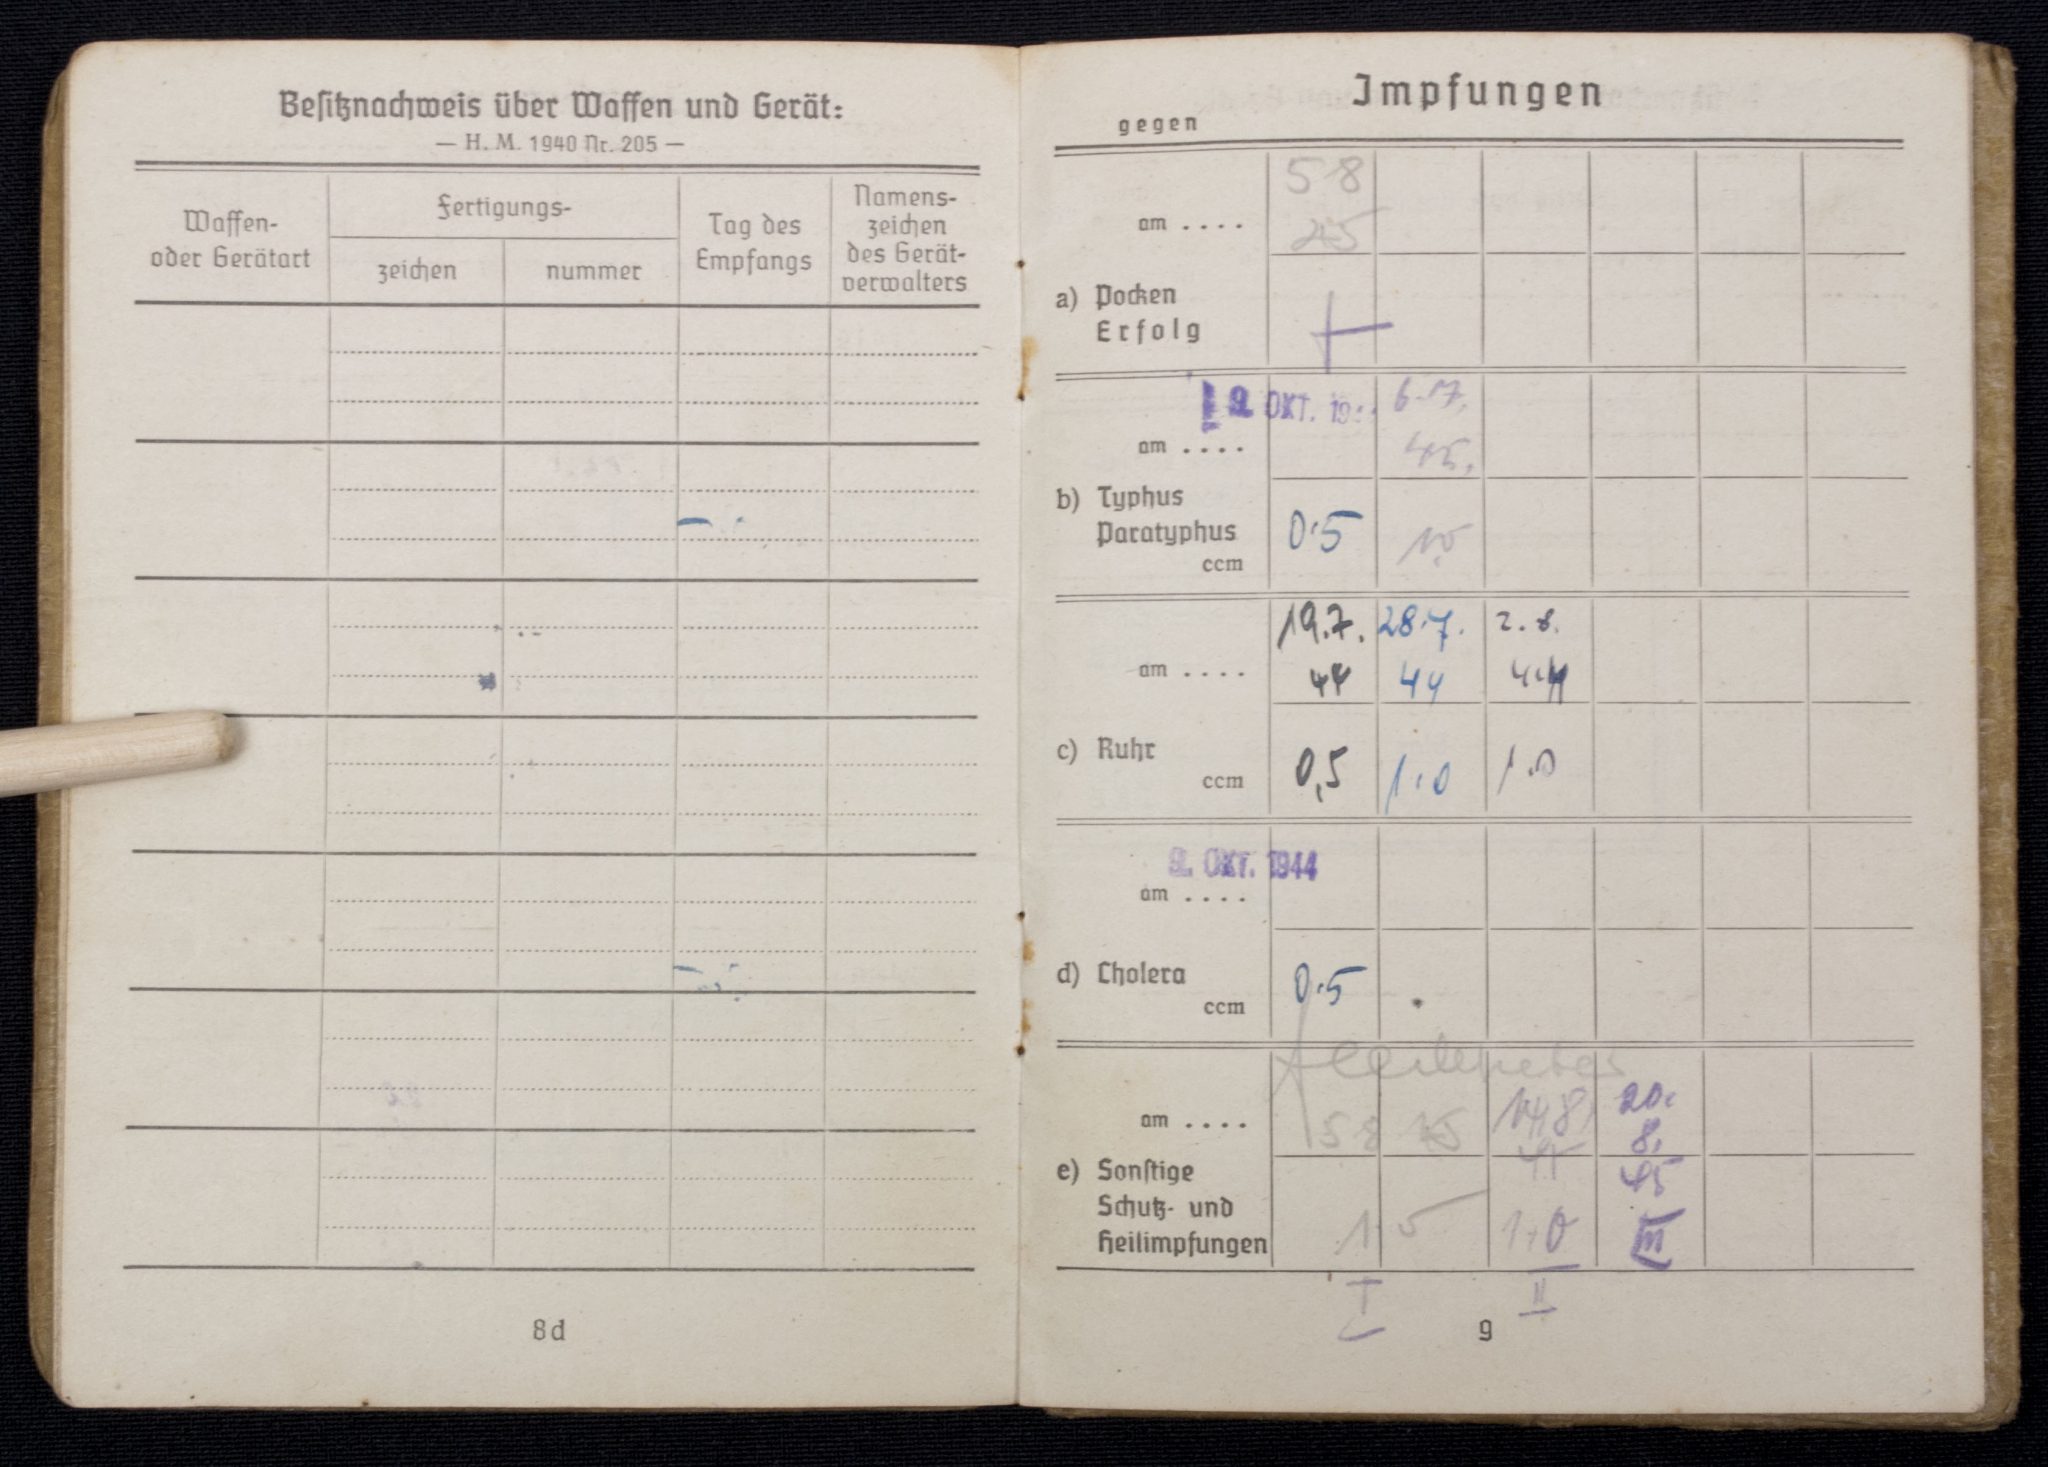 Besitznachweis über Waffen und Gerät:
— H. M. 1940 Nr. 205 —
Waffen-
oder Gerätart
Fertigungs-
zeichen
nummer
Tag des
Empfangs
Namens-
zeichen
des Gerät-
verwalters
8d
Impfungen
gegen
58
am ....
45
a) Pocken
Erfolg
+
OKT. 19
am ....
45.
b) Typhus
Paratyphus
ccm
0.5
19.7. 28.7. 2.8.
am ....
44 44 44
c) Ruhr
ccm
0,5 1.0 1.0
9. OKT. 1944
am ....
d) Cholera
ccm
0.5
am ....
58 45
14.8. 45
20. 8. 45
e) Sonstige
Schutz- und
Heilimpfungen
1.0
III
I II
9